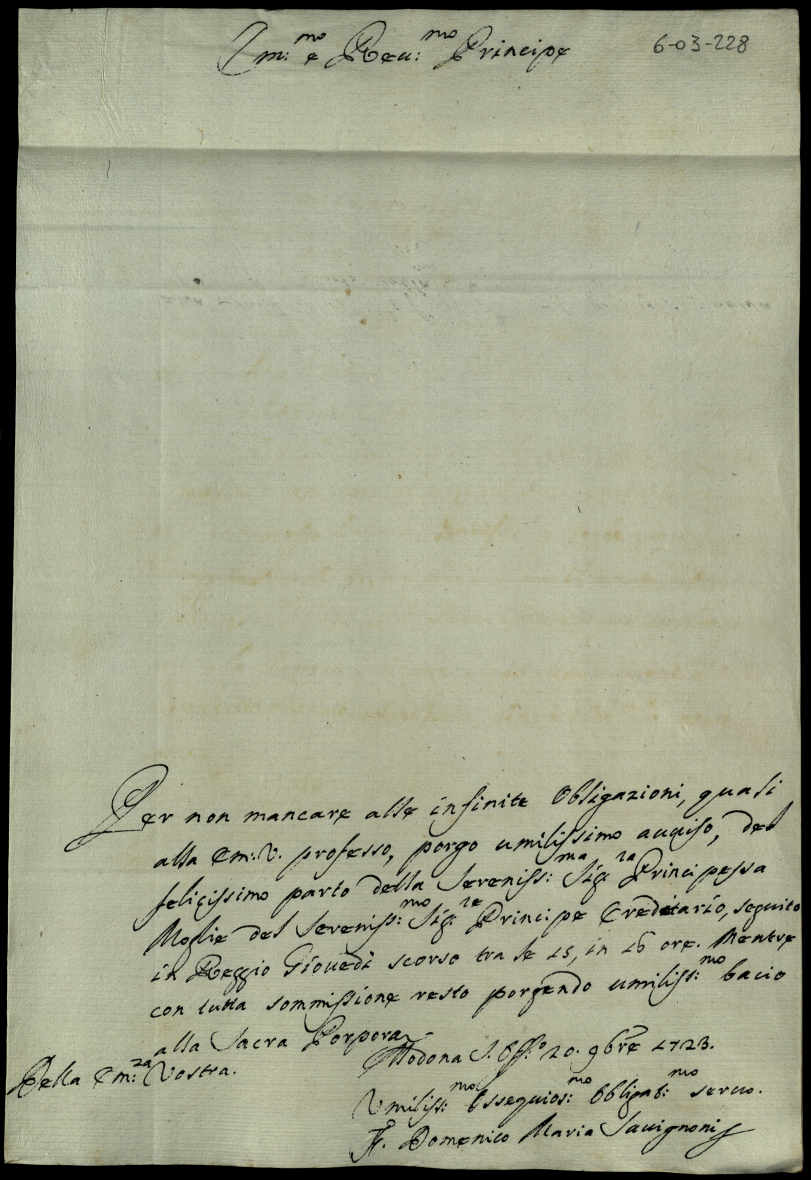 Em:mo e Reu:mo Principe
6-03-228
Per non mancare alle infinite Obligazioni, quali
alla Em:V. professo, porgo umilissimo auuiso, del
felicissimo parto della Sereniss:ma Sig:ra Principessa
Moglie del Sereniss:mo Sig:re Principe Ereditario, seguito
in Reggio Giouedi scorso tra le 15, in 16 ore. Mentre
con tutta sommissione resto porgendo umiliss:mo bacio
alla Sacra Porpora.
Della Em:za Vostra.
Modona S. Off:o 20. 9bre 1723.
Umiliss:mo Ossequios:mo Obbligat:mo seruo.
F. Domenico Maria Sauignoni